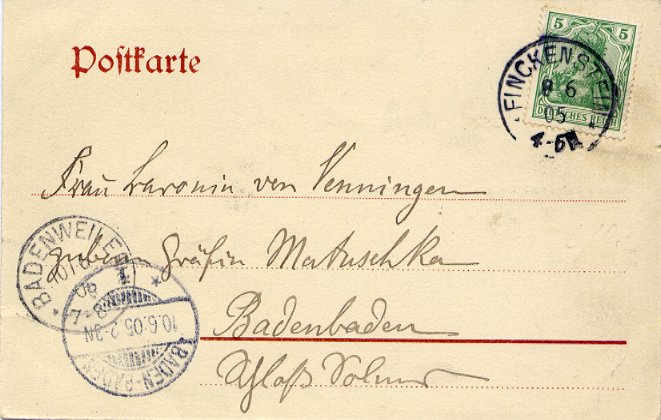 Postkarte
5 5
DEUTSCHES REICH
FINCKENSTEIN
8 6
05
4-5N
Frau Baronin von Venningen
geborene Gräfin Matuschka
BADENWEILER
Badenbaden
10.6.05.2-3N
BADEN-BADEN
Schloß Solms